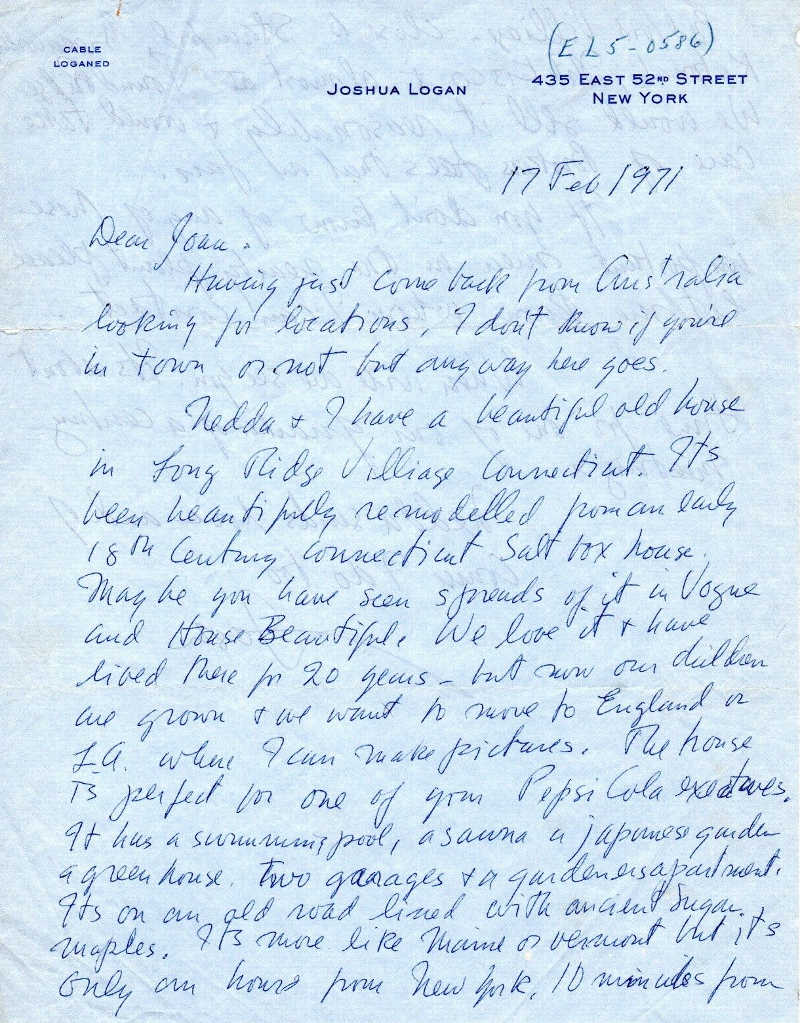 CABLE
LOGANED
JOSHUA LOGAN
(EL5-0586)
435 EAST 52ND STREET
NEW YORK
17 Feb 1971
Dear Joan.
Having just come back from Australia
looking for locations, I don't know if you're
in town or not but anyway here goes.
Nedda & I have a beautiful old house
in Long Ridge Villiage Connecticut. Its
been beautifully remodelled from an early
18th Century Connecticut Salt box house.
Maybe you have seen spreads of it in Vogue
and House Beautiful. We love it & have
lived there for 20 years - but now our children
are grown & we want to move to England or
L.A. where I can make pictures. The house
is perfect for one of your Pepsi Cola executives.
It has a swimming pool, a sauna a japanese garden
a green house. two garages & a gardeners apartment.
Its on an old road lined with ancient Sugar
maples. It's more like Maine or vermont but it's
only an hour from New York. 10 minutes from